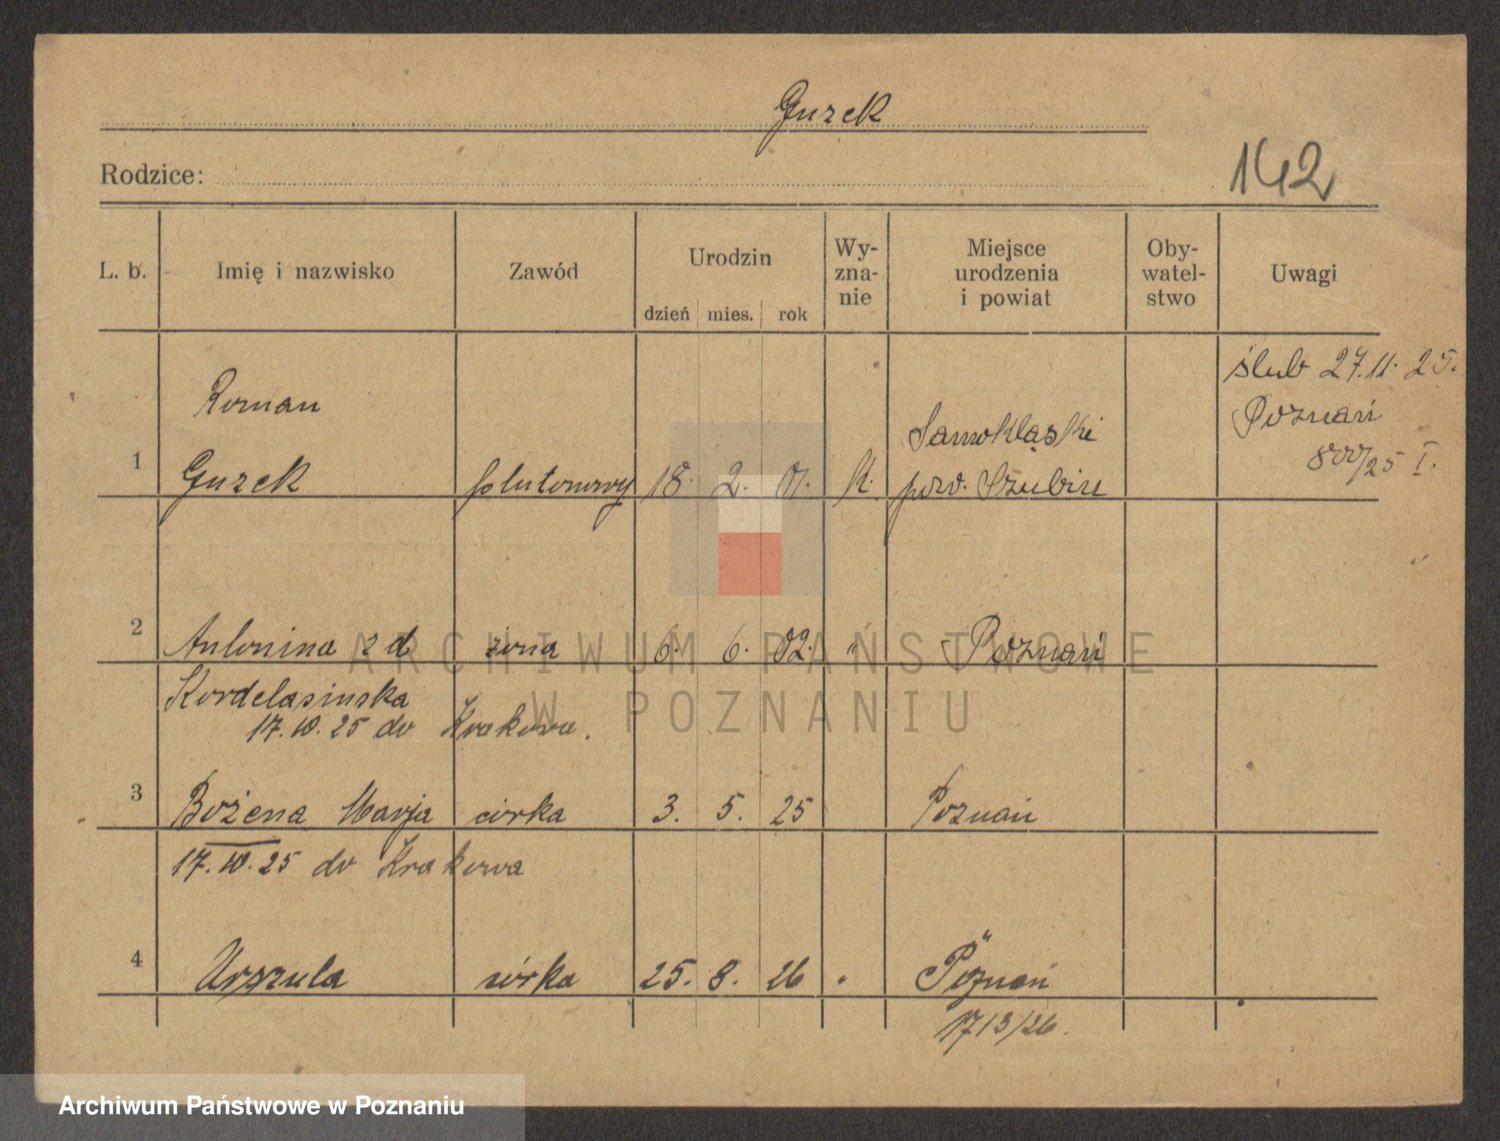 Guzek
142
Rodzice:
L. b.
Imię i nazwisko
Zawód
Urodzin
dzień mies. rok
Wy-
zna-
nie
Miejsce
urodzenia
i powiat
Oby-
watel-
stwo
Uwagi
1
Roman
Guzek
plutonowy
18. 2. 01.
k.
Samokląski
pow. Szubin
ślub 27.11.25.
Poznań
800/25 I.
2
Antonina z d
żona
6. 6. 02.
"
Poznań
Kordelasinska
17.10.25 do Krakowa.
3
Bożena Marja
córka
3. 5. 25
Poznań
17.10.25 do Krakowa
4
Urszula
córka
25. 8. 26
"
Poznań
1713/26.
ARCHIWUM PAŃSTWOWE
W POZNANIU
Archiwum Państwowe w Poznaniu